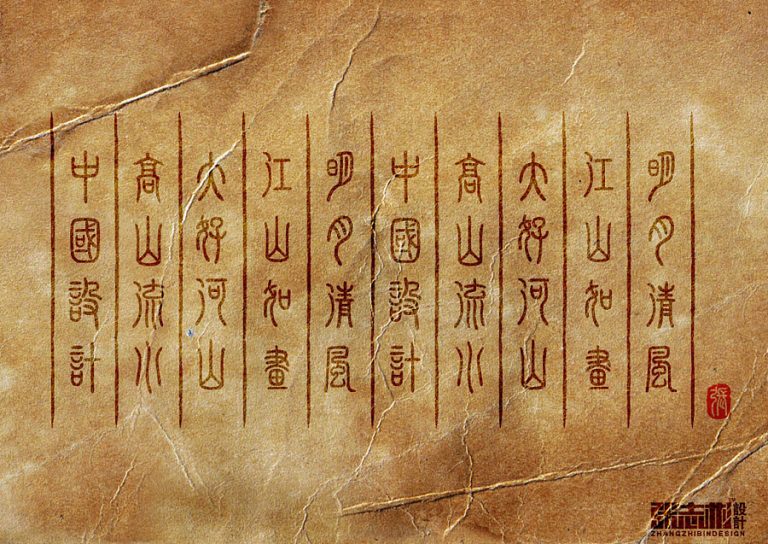 明月清風
江山如畫
大好河山
高山流水
中國設計
明月清風
江山如畫
大好河山
高山流水
中國設計
張
張志彬設計
ZHANGZHIBINDESIGN